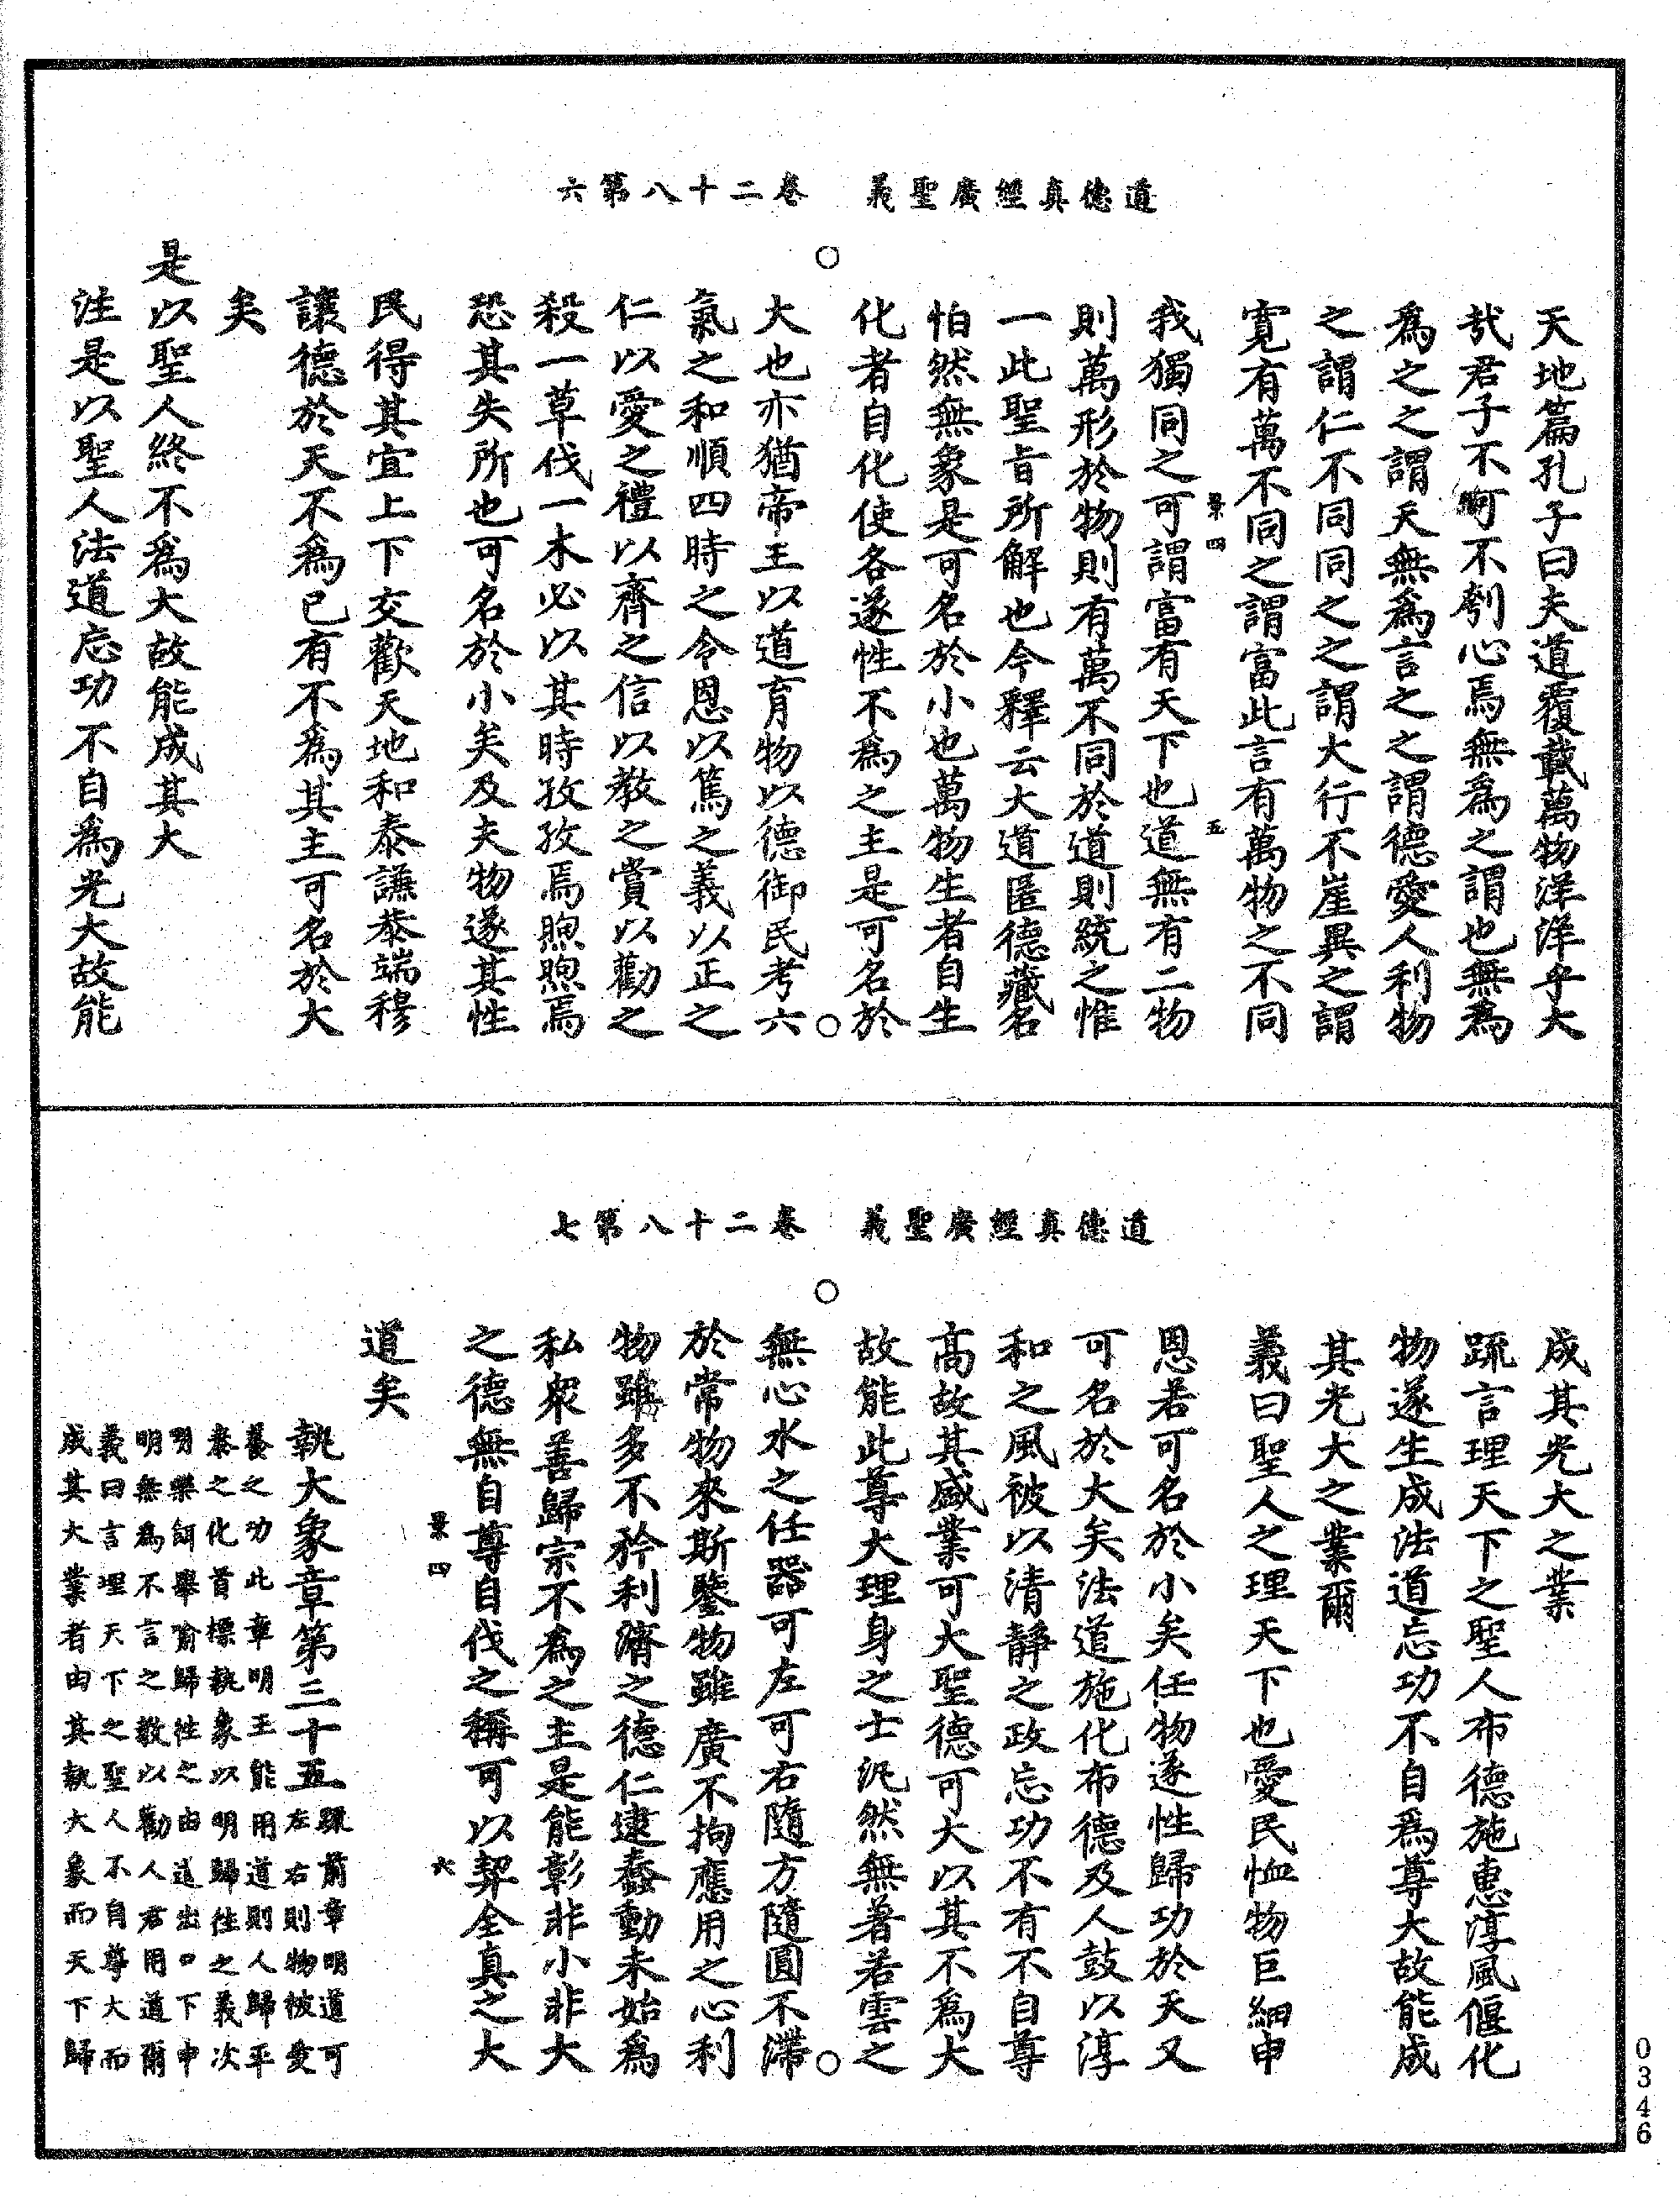 道德真經廣聖義　卷二十八第六
天地篇孔子曰夫道覆載萬物洋洋乎大
哉君子不可不刳心焉無為之謂也無為
為之之謂天無為言之之謂德愛人利物
之謂仁不同同之之謂大行不崖異之謂
寬有萬不同之謂富此言有萬物之不同
景四　五
我獨同之可謂富有天下也道無有二物
則萬形於物則有萬不同於道則統之惟
一此聖旨所解也今釋云大道匿德藏名
怕然無象是可名於小也萬物生者自生
化者自化使各遂性不為之主是可名於
大也亦猶帝王以道育物以德御民考六
氣之和順四時之令恩以篤之義以正之
仁以愛之禮以齊之信以教之賞以勸之
殺一草伐一木必以其時孜孜焉煦煦焉
恐其失所也可名於小矣及夫物遂其性
民得其宜上下交歡天地和泰謙恭端穆
讓德於天不為已有不為其主可名於大
矣
是以聖人終不為大故能成其大
注是以聖人法道忘功不自為光大故能
道德真經廣聖義　卷二十八第七
成其光大之業
疏言理天下之聖人布德施惠淳風偃化
物遂生成法道忘功不自為尊大故能成
其光大之業爾
義曰聖人之理天下也愛民恤物巨細申
恩若可名於小矣任物遂性歸功於天又
可名於大矣法道施化布德及人鼓以淳
和之風被以清靜之政忘功不有不自尊
高故其盛業可大聖德可大以其不為大
故能此尊大理身之士汎然無著若雲之
無心水之任器可左可右隨方隨圓不滯
於常物來斯鑒物雖廣不拘應用之心利
物雖多不矜利濟之德仁逮蠢動未始為
私衆善歸宗不為之主是能彰非小非大
之德無自尊自伐之稱可以契全真之大
景四　六
道矣
執大象章第三十五疏前章明道可
左右則物被愛
養之功此章明王能用道則人歸平
泰之化首標執象以明歸往之義次
明樂餌舉喻歸往之由道出口下申
明無為不言之教以勸人君用道爾
義曰言理天下之聖人不自尊大而
成其大業者由其執大象而天下歸
0346